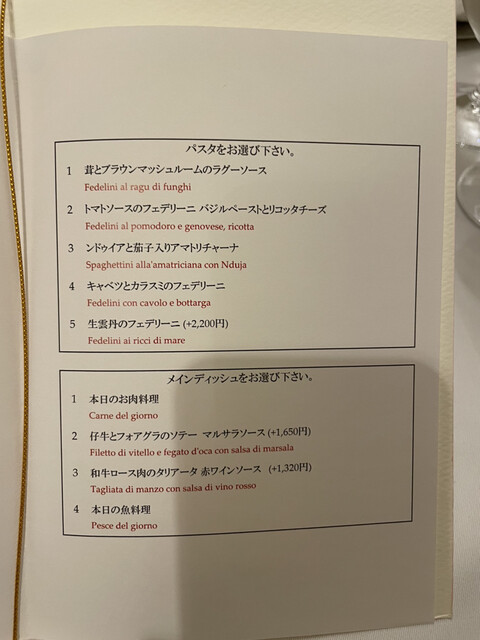 パスタをお選び下さい。
1 茸とブラウンマッシュルームのラグーソース
Fedelini al ragu di funghi
2 トマトソースのフェデリーニ バジルペーストとリコッタチーズ
Fedelini al pomodoro e genovese, ricotta
3 ンドゥイアと茄子入りアマトリチャーナ
Spaghettini alla'amatriciana con Nduja
4 キャベツとカラスミのフェデリーニ
Fedelini con cavolo e bottarga
5 生雲丹のフェデリーニ (+2,200円)
Fedelini ai ricci di mare
メインディッシュをお選び下さい。
1 本日のお肉料理
Carne del giorno
2 仔牛とフォアグラのソテー マルサラソース (+1,650円)
Filetto di vitello e fegato d'oca con salsa di marsala
3 和牛ロース肉のタリアータ 赤ワインソース (+1,320円)
Tagliata di manzo con salsa di vino rosso
4 本日の魚料理
Pesce del giorno